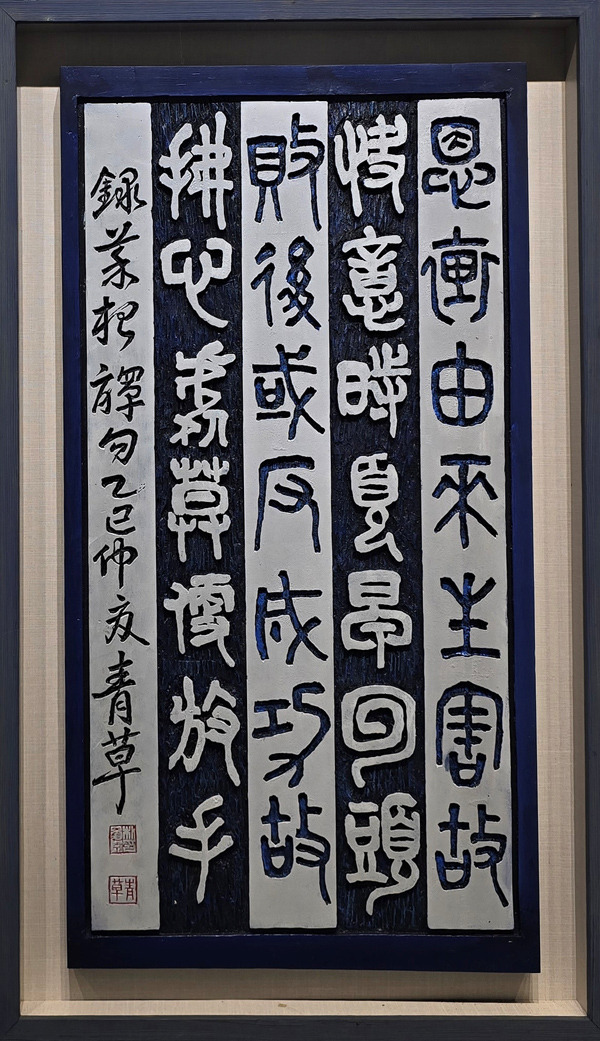 恩裏由來生害故
快意時須早回頭
敗後或反成功故
拂心處莫便放手
錄菜根譚句乙巳仲夏青草
青草